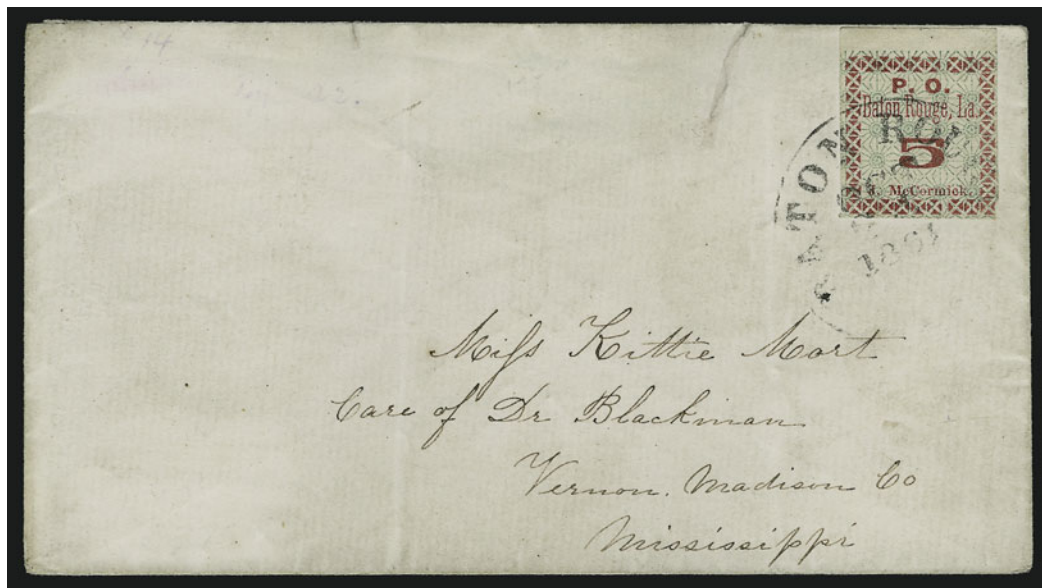 14
P. O.
Baton Rouge, La.
5
J. McCormick.
BATON ROU
1861
Miſs Kittie Mort
Care of Dr Blackman
Vernon. Madison Co
Mississippi